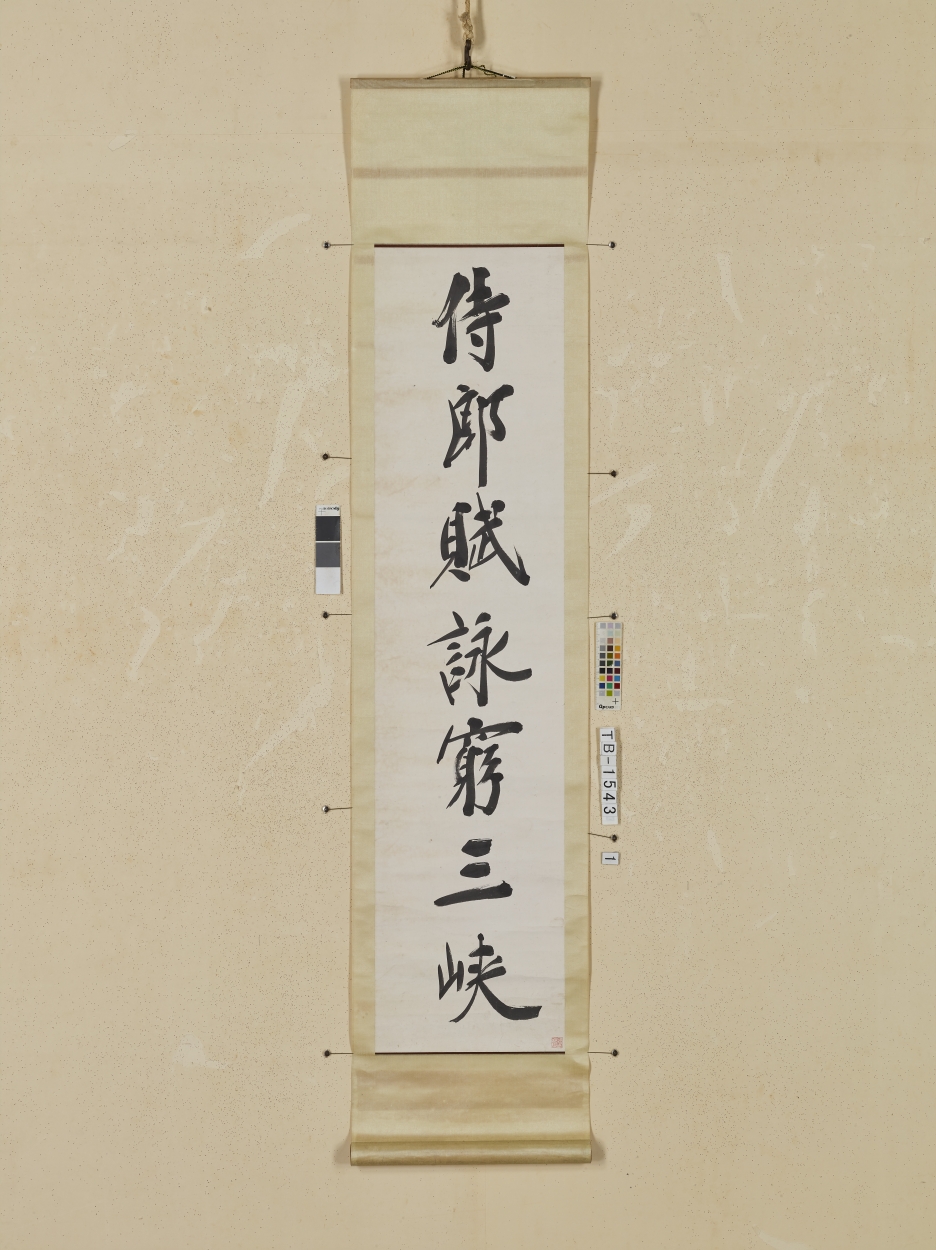 侍郎賦詠窮三峽
TB-1543
1